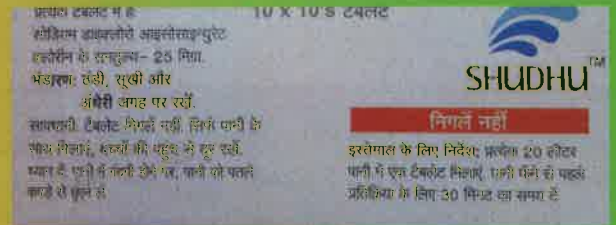 प्रत्येक टेबलेट में है
10 X 10'S टेबलेट
सोडियम डाइक्लोरो आइसोसाइन्युरेट
क्लोरीन के समतुल्य- 25 मिग्रा.
भंडारण: ठंडी, सूखी और
अंधेरी जगह पर रखें.
सावधानी: टेबलेट निगलें नहीं, सिर्फ पानी के
साथ मिलाएं, बच्चों की पहुंच से दूर रखें.
ध्यान दें: पानी में गंदगी होने पर, पानी को पतले
कपड़े से छान लें
SHUDHU TM
निगलें नहीं
इस्तेमाल के लिए निर्देश: प्रत्येक 20 लीटर
पानी में एक टेबलेट मिलाएं, पानी पीने से पहले
प्रतिक्रिया के लिए 30 मिनट का समय दें